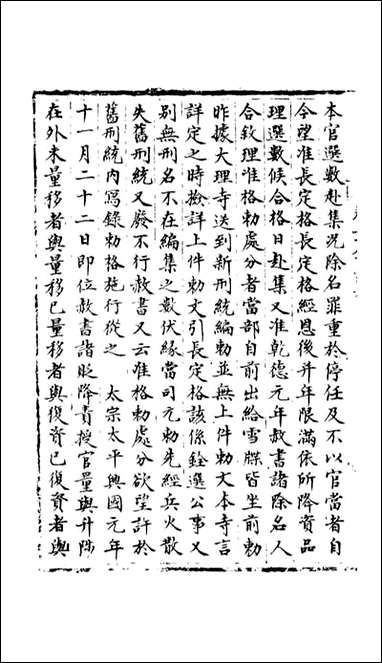 本官選數赴集況除名罪重於停任及不以官當者自
今望准長定格長定格經恩後并年限滿依所降資品
理選數候合格日赴集又准乾德元年赦書諸除名人
合敘理准格勅處分者當部自前出給雪牒皆坐前勅
昨據大理寺送到新刑統編勅並無上件勅文本寺言
詳定之時撿詳上件勅文引長定格該係銓選公事又
別無刑名不在編集之數伏緣當司元勅先經兵火散
失舊刑統又廢不行赦書又云准格勅處分欲望許於
舊刑統內寫錄勅格施行從之 太宗太平興國元年
十一月二十二日即位赦書諸貶降責授官量與升陟
在外未量移者與量移已量移者與復資已復資者與